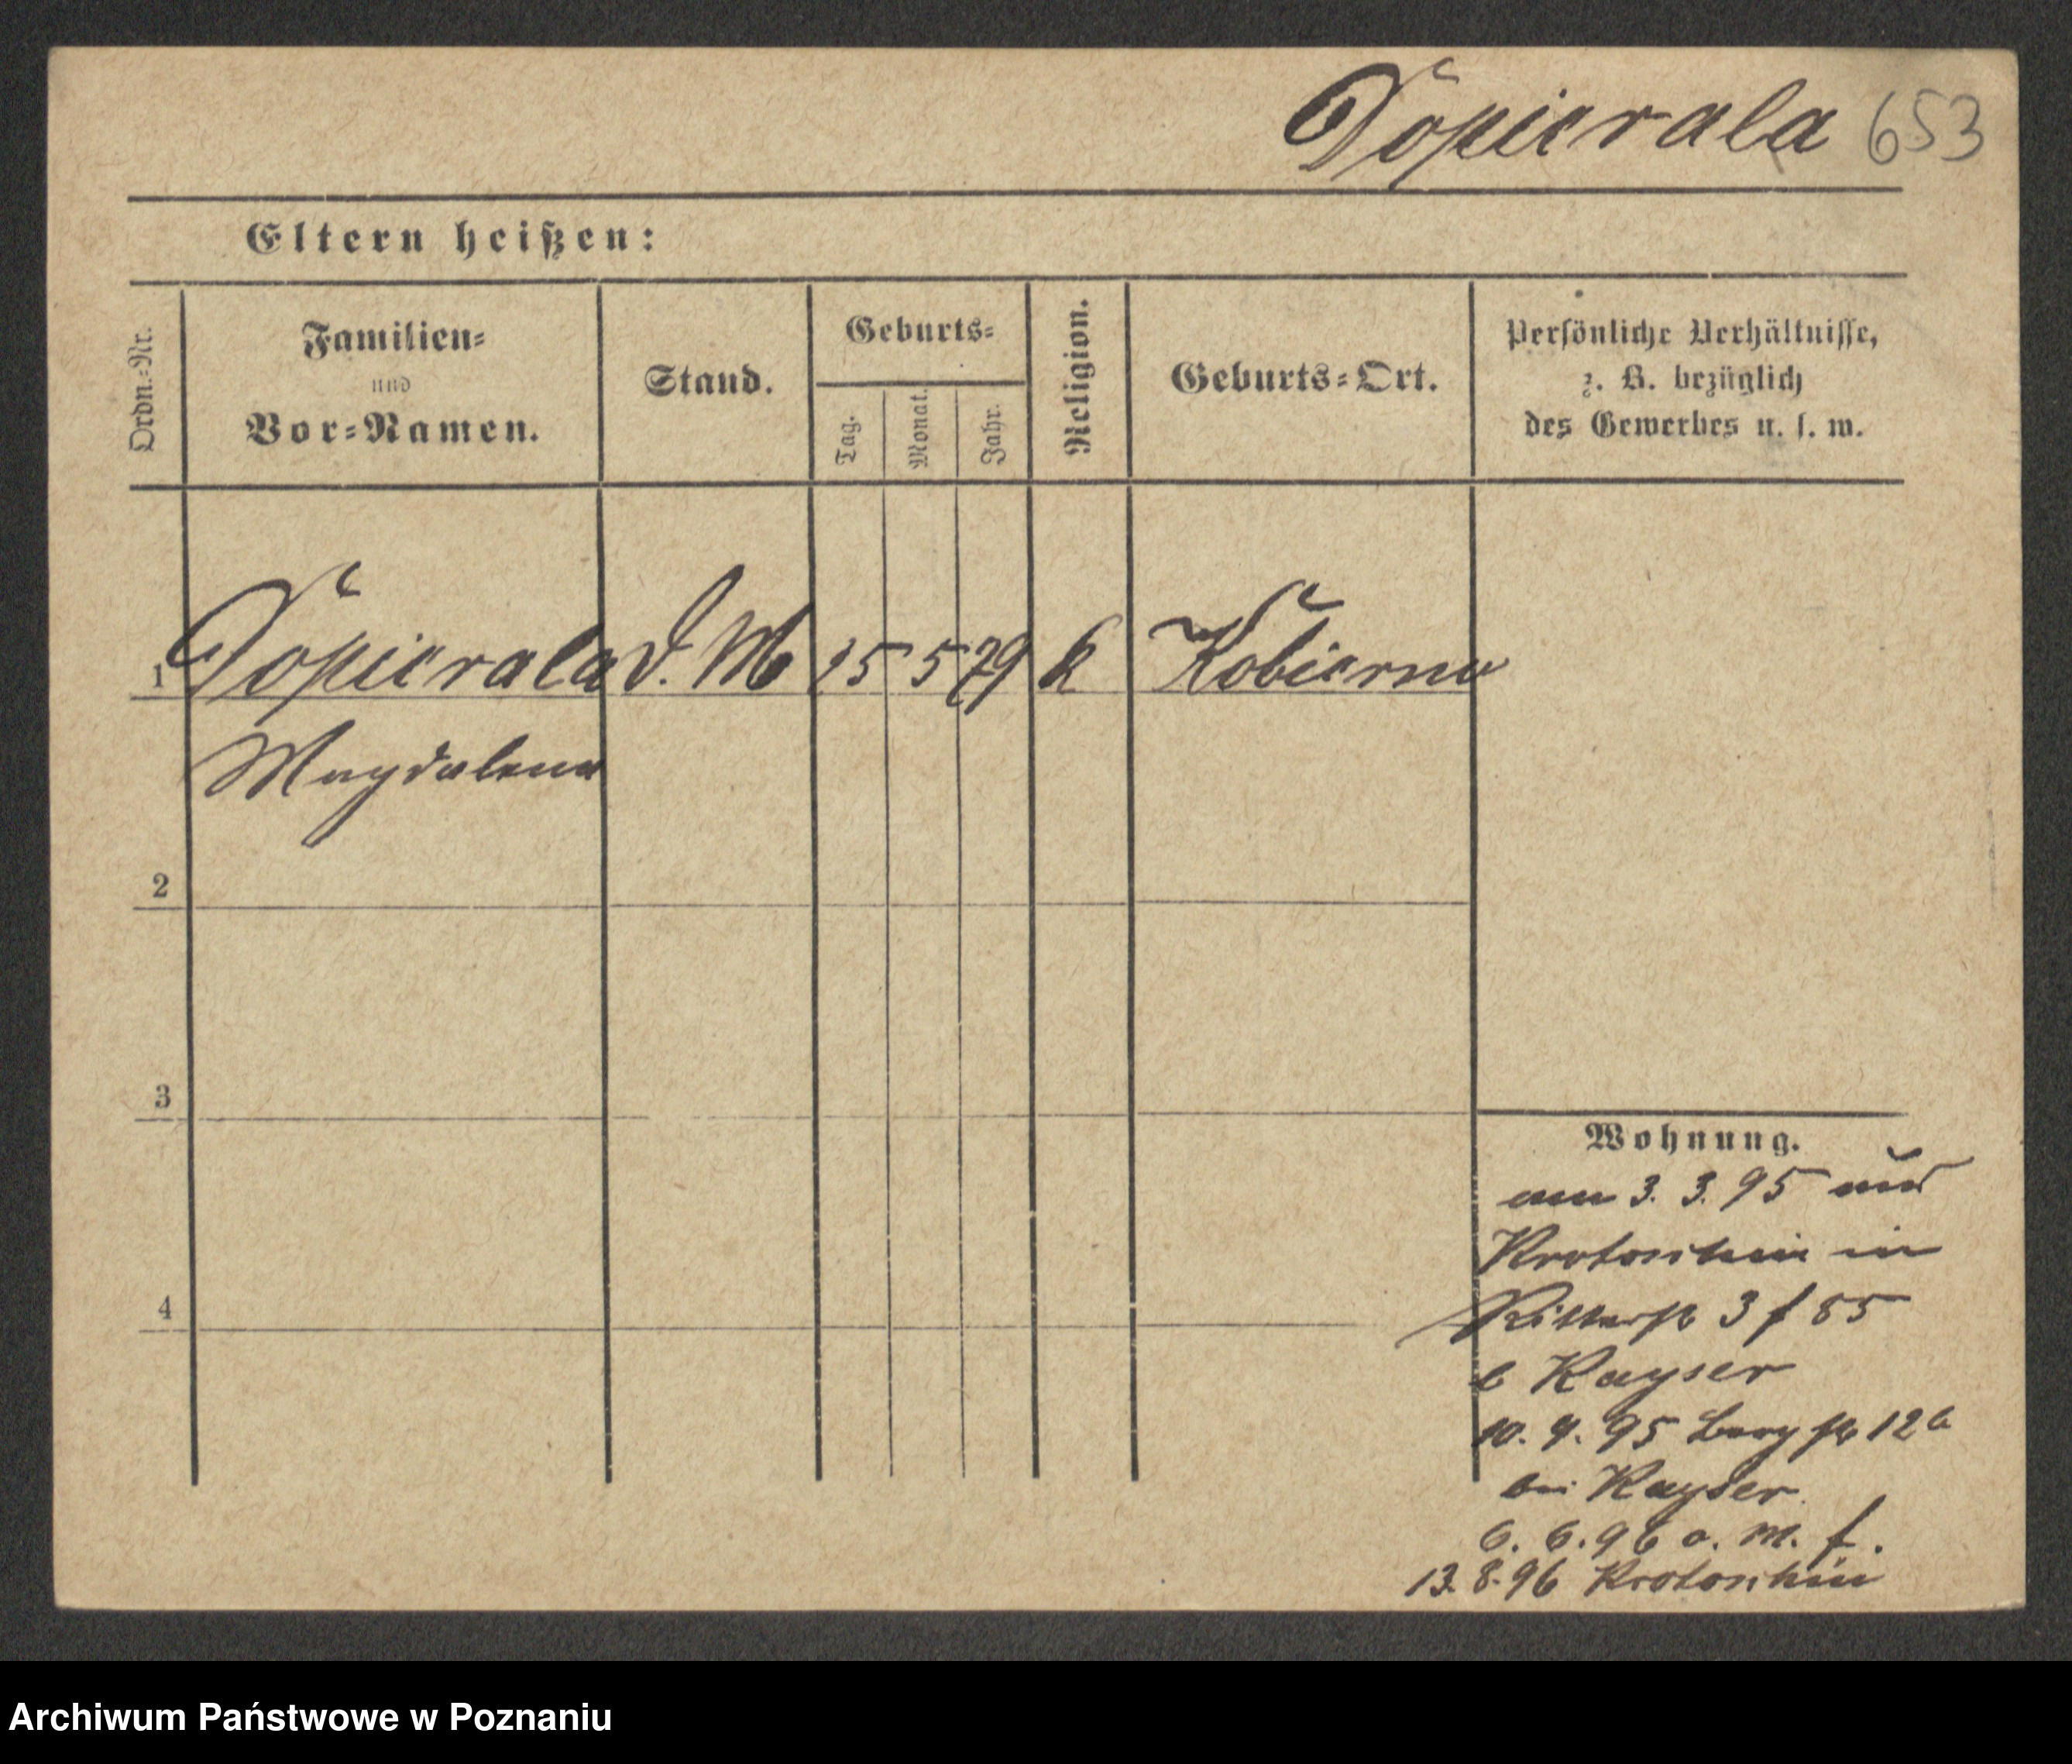 Dopierala 653
Eltern heißen:
Ordn.-Nr.
Familien-
und
Vor-Namen.
Stand.
Geburts-
Tag.
Monat.
Jahr.
Religion.
Geburts-Ort.
Persönliche Verhältnisse,
z. B. bezüglich
des Gewerbes u. s. w.
1 Dopierala D. M 15 5 79 k Kobierno
Magdalena
2
3
4
Wohnung.
am 3. 3. 95 aus
Krotoschin in
Ritterstr 3 f 85
b Kayser
10. 9. 95 Berg str 12b
bei Kayser.
6. 6. 96 a. M. f.
13. 8. 96 Krotoschin
Archiwum Państwowe w Poznaniu